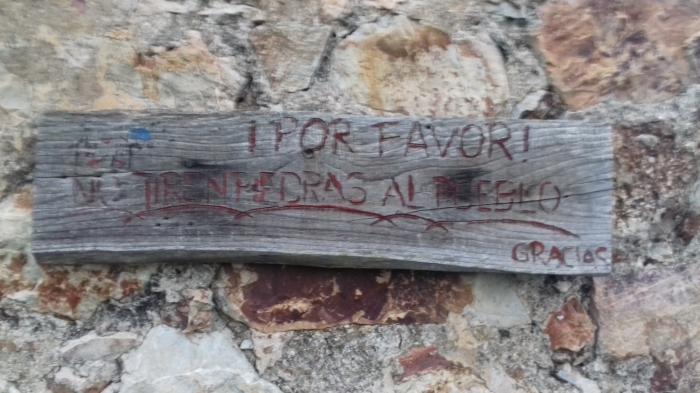 ¡POR FAVOR!
NO TIREN PIEDRAS AL PUEBLO
GRACIAS